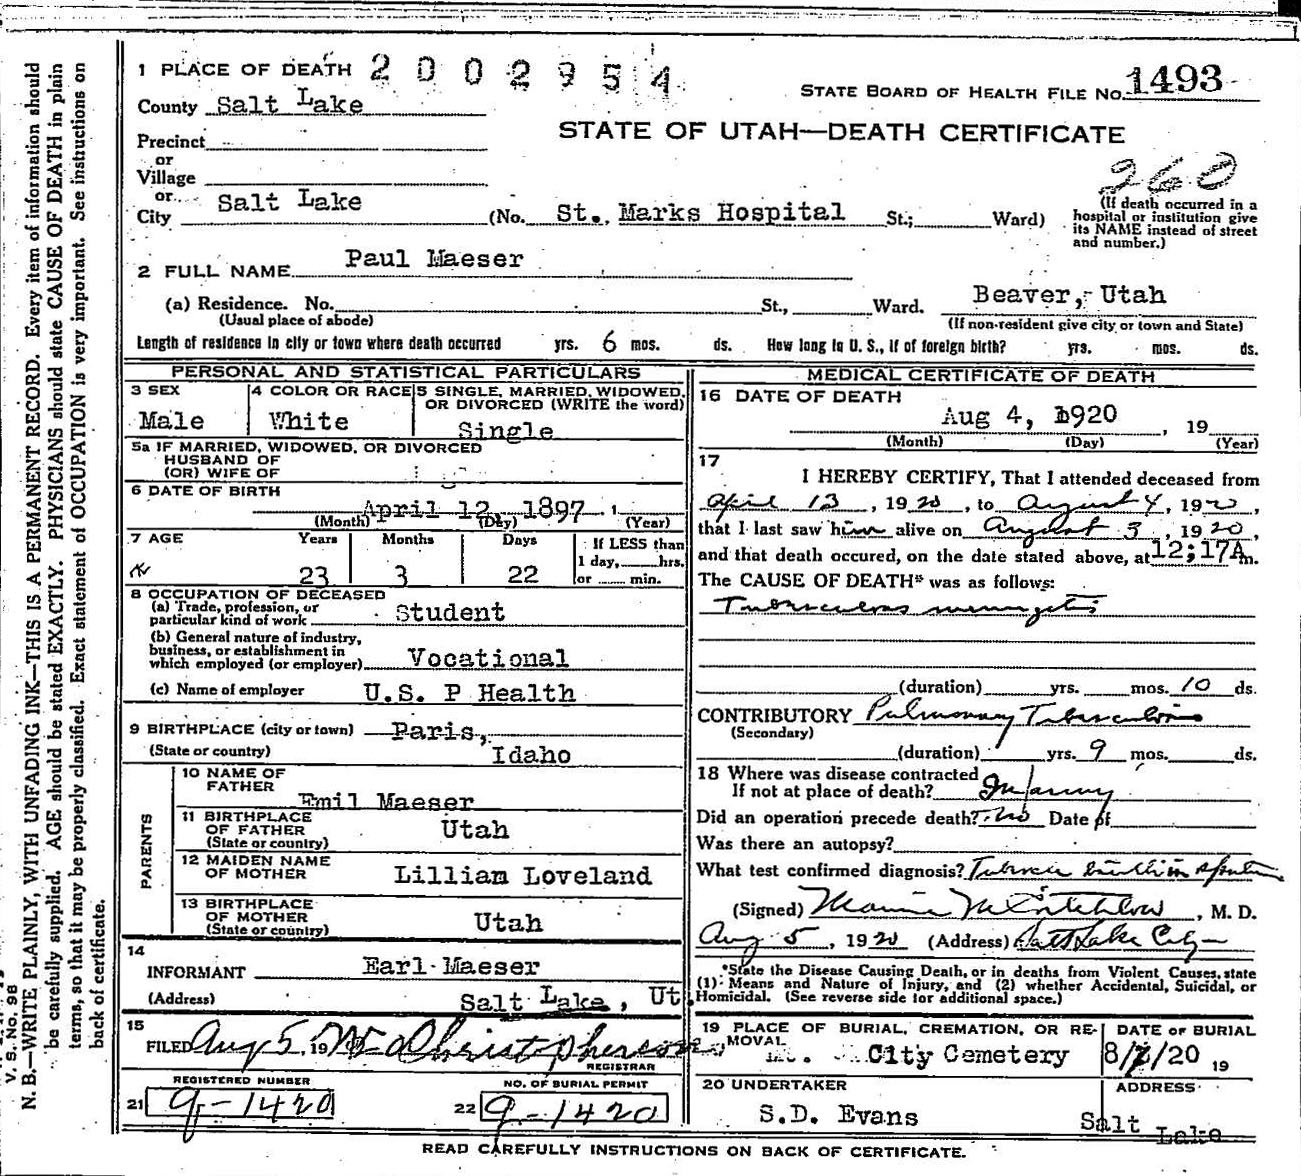 1 PLACE OF DEATH 2002954
STATE BOARD OF HEALTH FILE No. 1493
County Salt Lake
STATE OF UTAH—DEATH CERTIFICATE
Precinct
or
Village
260
or
City Salt Lake (No. St. Marks Hospital St.; Ward)
(If death occurred in a hospital or institution give its NAME instead of street and number.)
2 FULL NAME Paul Maeser
(a) Residence. No. St., Ward. Beaver, Utah
(Usual place of abode) (If non-resident give city or town and State)
Length of residence in city or town where death occurred yrs. 6 mos. ds. How long in U. S., if of foreign birth? yrs. mos. ds.
PERSONAL AND STATISTICAL PARTICULARS
3 SEX Male
4 COLOR OR RACE White
5 SINGLE, MARRIED, WIDOWED, OR DIVORCED (WRITE the word) Single
5a IF MARRIED, WIDOWED, OR DIVORCED
HUSBAND OF
(OR) WIFE OF
6 DATE OF BIRTH
April 12, 1897
(Month) (Day) (Year)
7 AGE Years Months Days If LESS than
1 day, hrs.
23 3 22 or min.
8 OCCUPATION OF DECEASED
(a) Trade, profession, or
particular kind of work Student
(b) General nature of industry,
business, or establishment in
which employed (or employer) Vocational
(c) Name of employer U.S. P Health
9 BIRTHPLACE (city or town) Paris,
(State or country) Idaho
PARENTS
10 NAME OF
FATHER Emil Maeser
11 BIRTHPLACE
OF FATHER Utah
(State or country)
12 MAIDEN NAME
OF MOTHER Lilliam Loveland
13 BIRTHPLACE
OF MOTHER Utah
(State or country)
14
INFORMANT Earl Maeser
(Address) Salt Lake, Ut
15
FILED Aug 5, 19 Christopherson
REGISTRAR
REGISTERED NUMBER NO. OF BURIAL PERMIT
21 9-1420 22 9-1420
MEDICAL CERTIFICATE OF DEATH
16 DATE OF DEATH
Aug 4, 1920, 19
(Month) (Day) (Year)
17
I HEREBY CERTIFY, That I attended deceased from
April 13, 1920, to August 4, 1920,
that I last saw him alive on August 3, 1920,
and that death occured, on the date stated above, at 12;17A m.
The CAUSE OF DEATH* was as follows:
Tuberculous meningitis
(duration) yrs. mos. 10 ds.
CONTRIBUTORY Pulmonary Tuberculosis
(Secondary)
(duration) yrs. 9 mos. ds.
18 Where was disease contracted
If not at place of death? In army
Did an operation precede death? no Date of
Was there an autopsy?
What test confirmed diagnosis? Tubercle bacilli in sputum
(Signed) , M. D.
Aug 5, 1920 (Address) Salt Lake City
*State the Disease Causing Death, or in deaths from Violent Causes, state
(1) Means and Nature of Injury, and (2) whether Accidental, Suicidal, or
Homicidal. (See reverse side for additional space.)
19 PLACE OF BURIAL, CREMATION, OR RE-
MOVAL City Cemetery
DATE OF BURIAL
8/7/20 19
20 UNDERTAKER
S.D. Evans
ADDRESS
Salt Lake
READ CAREFULLY INSTRUCTIONS ON BACK OF CERTIFICATE.
V. S. No. 98
N. B.—WRITE PLAINLY, WITH UNFADING INK—THIS IS A PERMANENT RECORD. Every item of information should
be carefully supplied. AGE should be stated EXACTLY. PHYSICIANS should state CAUSE OF DEATH in plain
terms, so that it may be properly classified. Exact statement of OCCUPATION is very important. See instructions on
back of certificate.